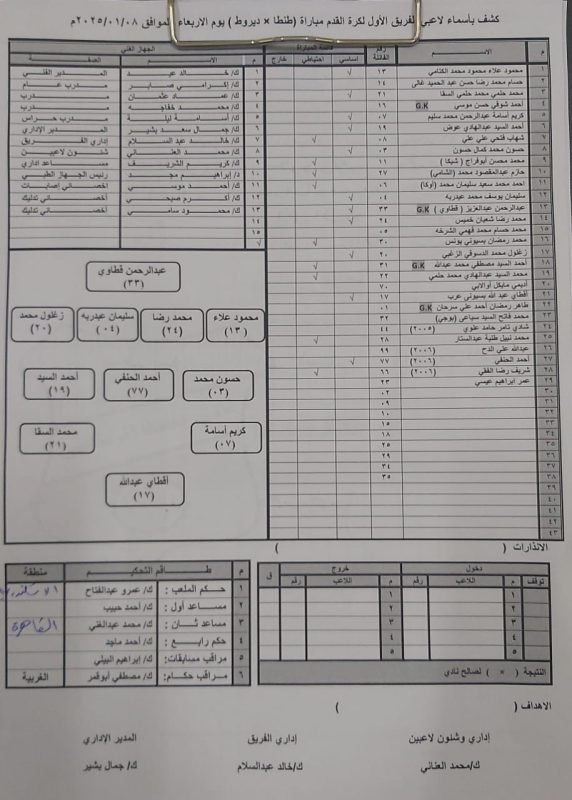 كشف بأسماء لاعبي الفريق الأول لكرة القدم مباراة (طنطا × ديروط) يوم الاربعاء الموافق ٢٠٢٥/٠١/٠٨م
م الاســـم رقم الفانلة قائمة المباراة اساسي احتياطي خارج
١ محمود علاء محمود محمد الكتامي ١٣ √
٢ حسام محمد رضا حسن عبد الحميد غالى ١٤
٣ محمد حلمي محمد حلمي السقا ٢١ √
٤ أحمد شوقي حسن موسي G.K ١٦
٥ كريم أسامة عبدالرحمن محمد سليم ٠٧ √
٦ أحمد السيد عبدالهادي عوض ١٩ √
٧ شهاب فتحي علي علي ٠٨ √
٨ حسون محمد كمال حسون ٠٣ √
٩ محمد محسن أبوفراج (شيكا) ١١ √
١٠ حازم عبدالمقصود محمد (الشامي) ٢٧ √
١١ احمد محمد سعيد سليمان محمد (أوكا) ٠٦ √
١٢ سليمان يوسف محمد عبدربه ٠٤ √
١٣ عبدالرحمن عبدالعزيز (قطاوي) G.K ٣٣ √
١٤ محمد رضا شعبان خميس ٢٤ √
١٥ محمد حسام محمد فهمي الشرخه ٠٥
١٦ محمد رمضان بسيوني يونس ٣٠ √
١٧ زغلول محمد الدسوقي الزغبي ٢٠ √
١٨ أحمد السيد مصطفي محمد عبدالله G.K ٣١ √
١٩ محمد السيد عبدالهادي محمد حلمي ٢٢ √
٢٠ أديمي مايكل أوالابي ٧٠
٢١ أقطاي عبد الله بسيوني عرب ١٧ √
٢٢ طاهر رمضان أحمد علي سرحان G.K ٠١
٢٣ محمد فاتح السيد سباعى (بوجي) ٣٢
٢٤ شادي تامر حامد علوي (٢٠٠٥) ٤٤
٢٥ محمد نبيل طلبة عبدالستار ٢٨ √
٢٦ عبدالله علي الدح (٢٠٠٦) ٩٩
٢٧ أحمد الحنفي (٢٠٠٦) ٧٧ √
٢٨ شريف رضا الفقي (٢٠٠٦) ٦٦ √
٢٩ عمر ابراهيم عيسي ٢٣
٣٠ ٠٢
٣١ ٠٩
٣٢ ١٠
٣٣ ١٥
٣٤ ١٨
٣٥ ٢٩
٣٦ ٣٤
٣٧ ٣٥
٣٨
٣٩
٤٠
٤١
٤٢
٤٣
الجهاز الفني
م الاســـم الصفـــة
١ ك/ خـالد عيـد المـدير الفني
٢ ك/ إكـرامي صـابر مـدرب عـام
٣ ك/ عمـاد عثمـان مـدرب
٤ ك/ محمـد خفاجـه مـدرب
٥ ك/ أسـامة ليلـة مـدرب حـراس
٦ ك/ جمال سعيد بشير المـدير الإداري
٧ ك/ خـالد عبد السـلام إداري الفريق
٨ ك/ محمـد العنـاني شئـون لاعبـين
٩ ك/ كريـم الشريـف مساعد اداري
١٠ د/ إبراهيـم مجـد رئيس الجهاز الطبي
١١ ك/ أحمـد موسـى اخصـائي إصابات
١٢ ك/ أكـرم صبحـي أخصـائي تدليك
١٣ ك/ محمـود سـامي أخصـائي تدليك
١٤
١٥
√
عبدالرحمن قطاوي (٣٣)
محمود علاء (١٣)
محمد رضا (٢٤)
سليمان عبدربه (٠٤)
زغلول محمد (٢٠)
حسون محمد (٠٣)
أحمد الحنفي (٧٧)
أحمد السيد (١٩)
كريم أسامة (٠٧)
محمد السقا (٢١)
أقطاي عبدالله (١٧)
الانذارات ( )
دخول خروج
توقف م اللاعب رقم م اللاعب رقم ق
١ ١
٢ ٢
٣ ٣
٤ ٤
٥ ٥
النتيجة ( × ) لصالح نادي
م طـاقم التحكيـم منطقة
١ حـكم الملعب : ك/ عمرو عبدالفتاح الاسكندرية
٢ مسـاعد أول : ك/ أحمد حبيب
٣ مساعد ثـان : ك/ محمد عبدالغني القاهرة
٤ حكم رابـع : ك/ أحمد ماجد
٥ مراقب مسابقات: ك/ إبراهيم البيلي
٦ مراقب حكـام: ك/ مصطفي أبوقمر الغربية
الاهداف ( )
إداري وشئون لاعبين إداري الفريق المدير الإداري
ك/محمد العناني ك/خالد عبدالسلام ك/ جمال بشير